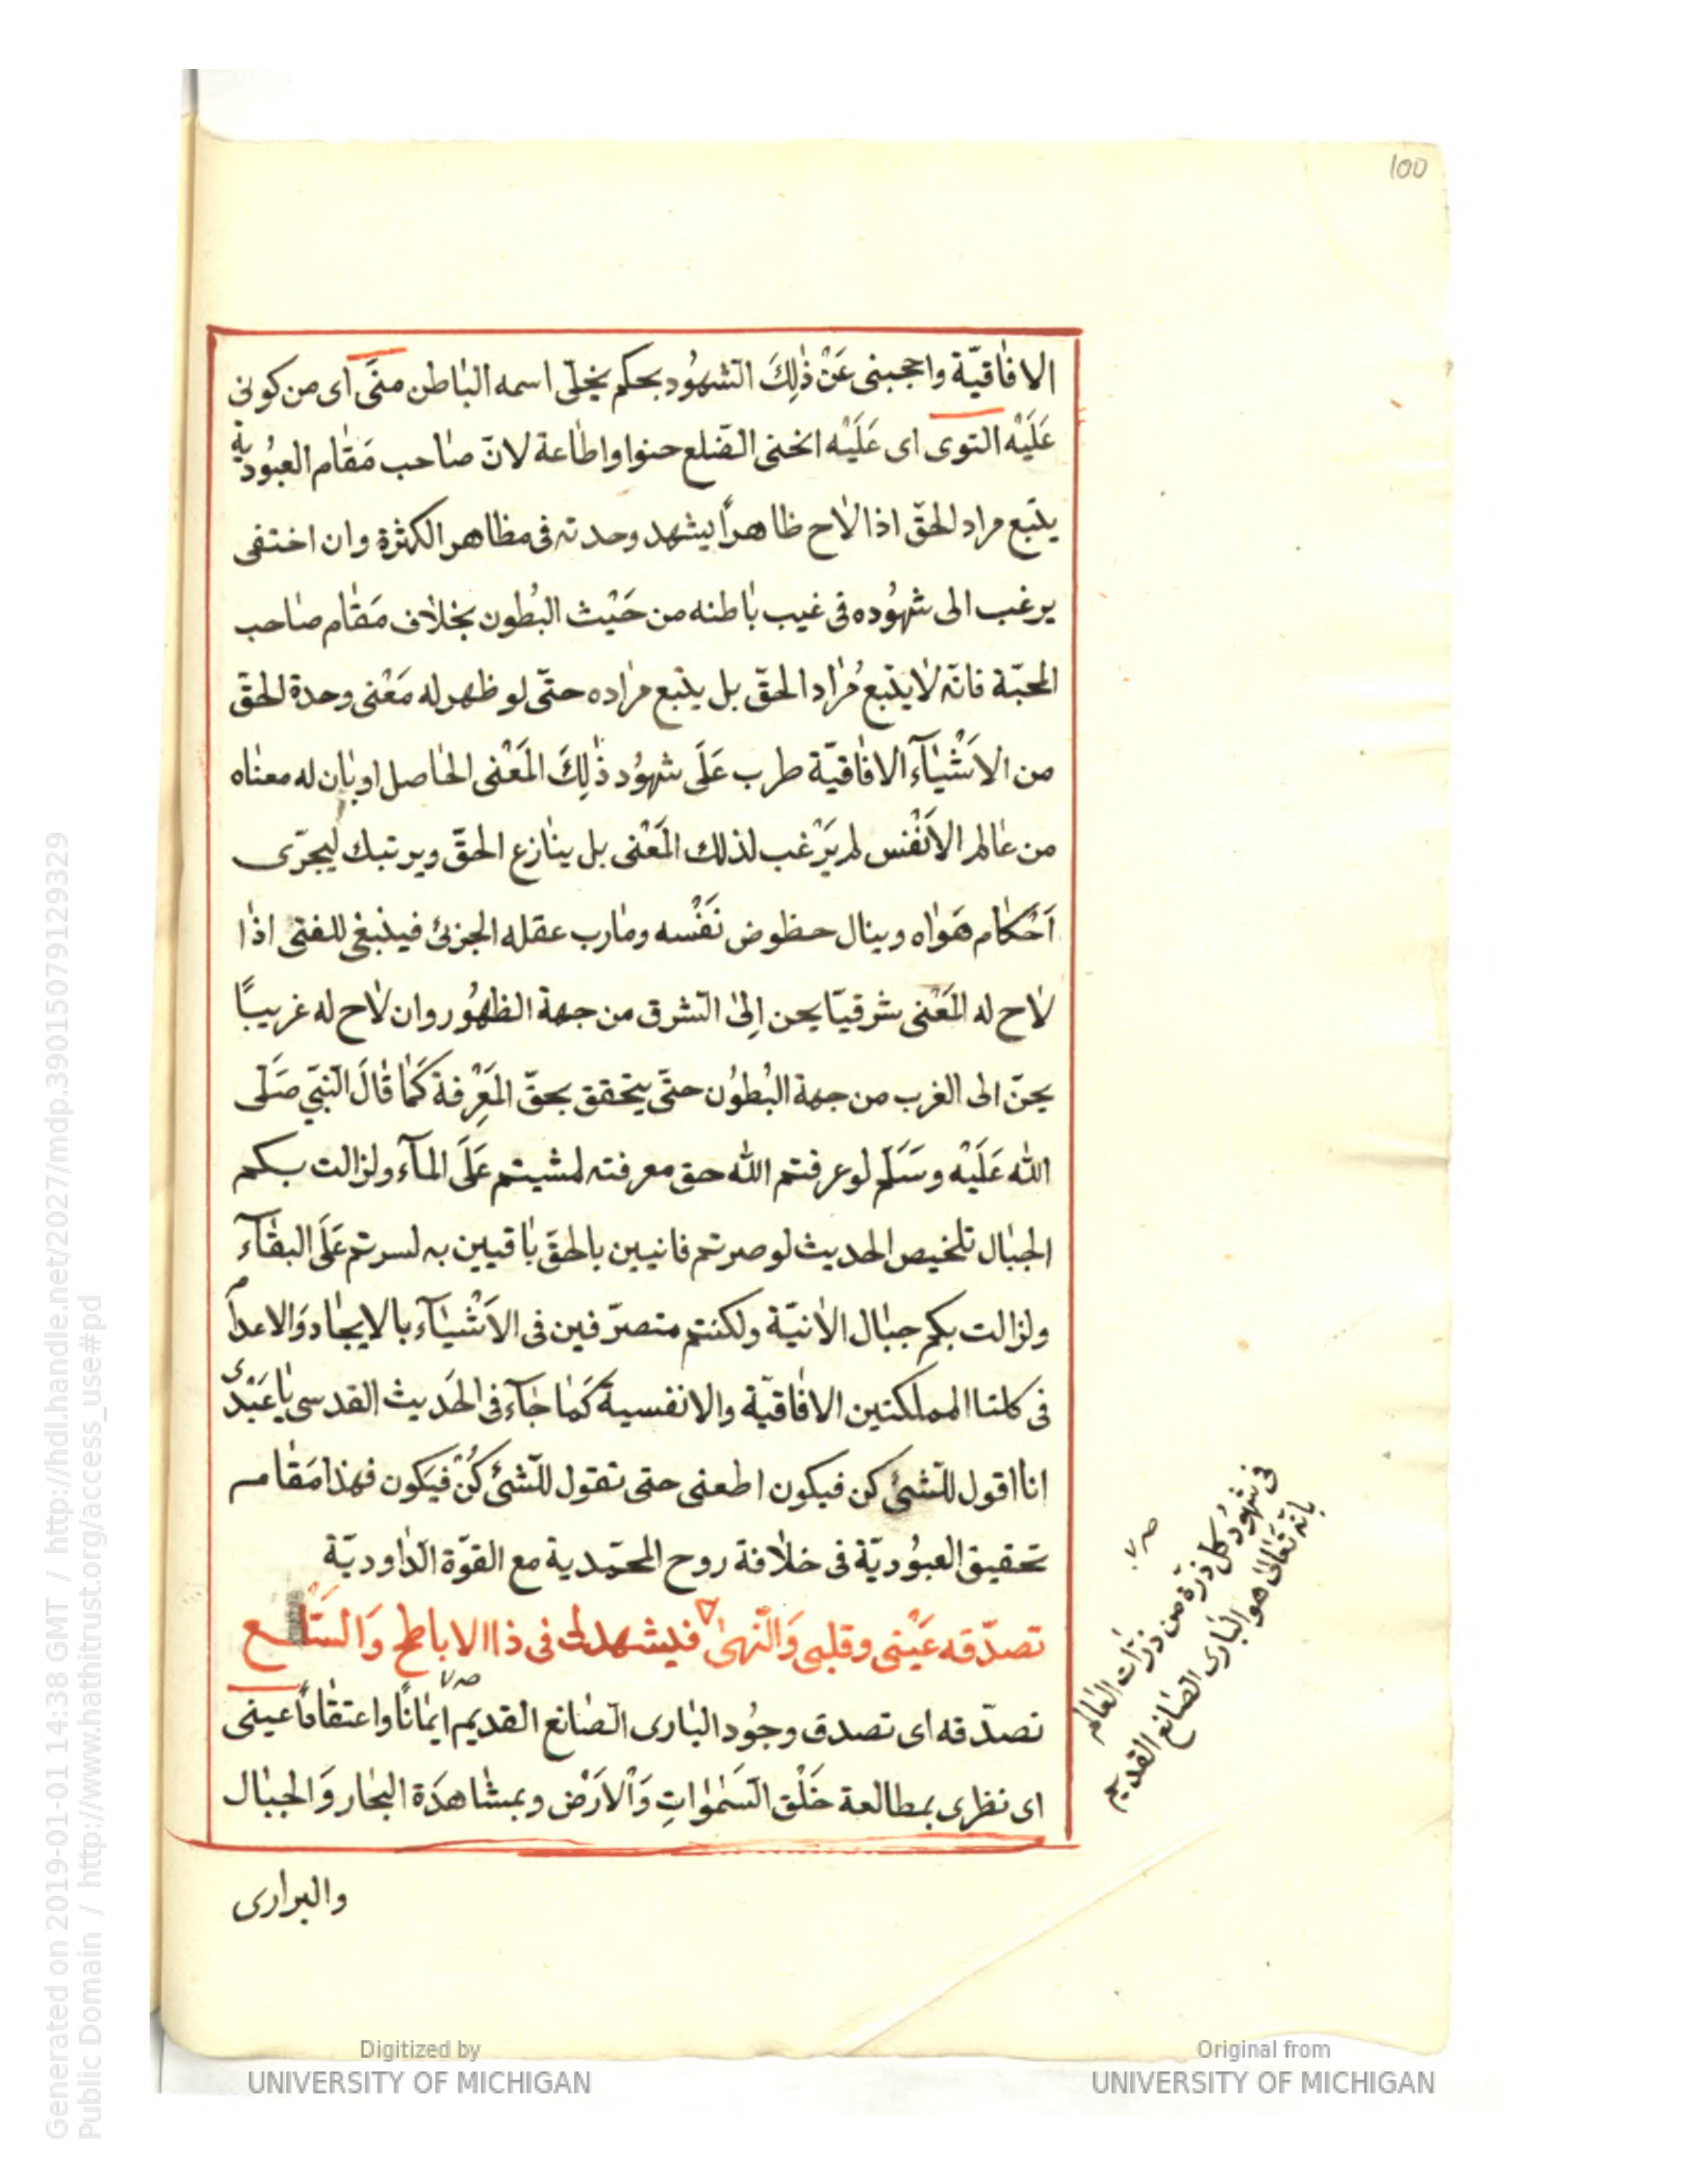 100
الافاقيّة واحجبنى عَنْ ذٰلِكَ الشهُود بحكم تجلّى اسمه البٰاطن منّى اى من كونى
عَلَيْه التوى اى عَلَيْه انحنى الضّلع حنوا واطاعة لانّ صٰاحب مَقٰام العبُودية
يتّبع مراد الحقّ اذا لاٰح ظاهراً يشهد وحدته فى مظاهر الكثرة وان اختفى
يرغب الى شهُوده فى غيب بٰاطنه من حَيْث البُطون بخلاٰف مَقٰام صٰاحب
المحبّة فانّه لاٰ يتّبع مُرٰاد الحقّ بل يتّبع مرٰاده حتّى لو ظهر له مَعْنى وحدة الحقّ
من الاَشْيٰآء الافٰاقيّة طرب عَلَى شهُود ذٰلِكَ المَعْنى الحٰاصل او بٰان له معنٰاه
من عٰالم الاَنْفس لم يَرْغب لذلك المَعْنى بل ينٰازع الحقّ ويرتبك ليجرّى
اَحْكٰام هَوٰاه وينال حظوض نَفْسه ومٰارب عقله الجزئ فينبغى للفتى اذٰا
لاٰح له المَعْنى شرقيّا يحن اِلىٰ الشرق من جهة الظهُور وان لاٰح له غريبًا
يحنّ الى الغرب من جهة البُطوُن حتّى يتحقق بحقّ المَعِرْفة كَمٰا قٰالَ النّبّى صَلّى
الله عَلَيْه وسَلَّم لو عرفتم الله حق معرفته لمشيتم عَلَى المآء ولزالت بكم
الجبٰال تلخيص الحديث لو صرتم فانيين بالحقّ بٰاقيين به لسرتم عَلَى البقٰآء
ولزالت بكم جبٰال الاٰنيّة ولكنتم متصرّفين فى الاَشْيٰآء بالايجٰاد وَالاعدام
فى كلتا المملكتين الافٰاقيّة والانفسية كَمٰا جٰآء فى الحَديث القدسى يٰا عَبْدى
انا اقول للشئ كن فيكون اطعنى حتى تقول للشئ كُنْ فيَكون فهذا مَقٰام
تحقيق العبُوديّة فى خلاٰفة روح المحمّدية مع القوّة الدٰاوديّة
تصدّقه عَيْنى وقلبى وَالنّهىٰ فليشهد لى فى ذا الاباطح وَالسَّلْع
تصدّقه اى تصدق وجُود البٰارى الصٰانع القديم ايمٰانًا واعتقٰاداً عينى
اى نظرى بمطالعة خَلْق السَّمٰوٰاتِ وَالْاَرَضْ وبمشٰاهدَة البحٰار وَالجبٰال
والبرارى
فى شهُود كُل ذرّة من ذرّات العٰالم
بانّه تعَالىٰ هو البٰارى الصٰانع القديم